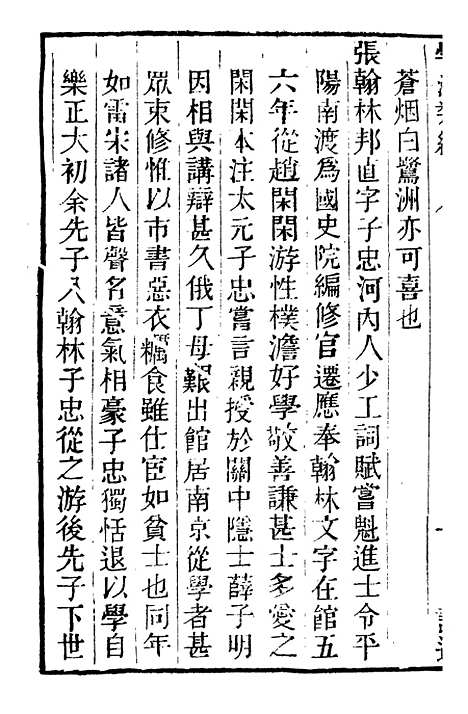 蒼烟白鷺洲亦可喜也
張翰林邦直字子忠河內人少工詞賦嘗魁進士令平
陽南渡爲國史院編修官遷應奉翰林文字在館五
六年從趙閑閑游性樸澹好學敬善謙甚士多愛之
閑閑本注太元子忠嘗言親授於關中隱士薛子明
因相與講辯甚久俄丁母艱出館居南京從學者甚
眾束修惟以市書惡衣糲食雖仕宦如貧士也同年
如雷宋諸人皆聲名意氣相豪子忠獨恬退以學自
樂正大初余先子入翰林子忠從之游後先子下世